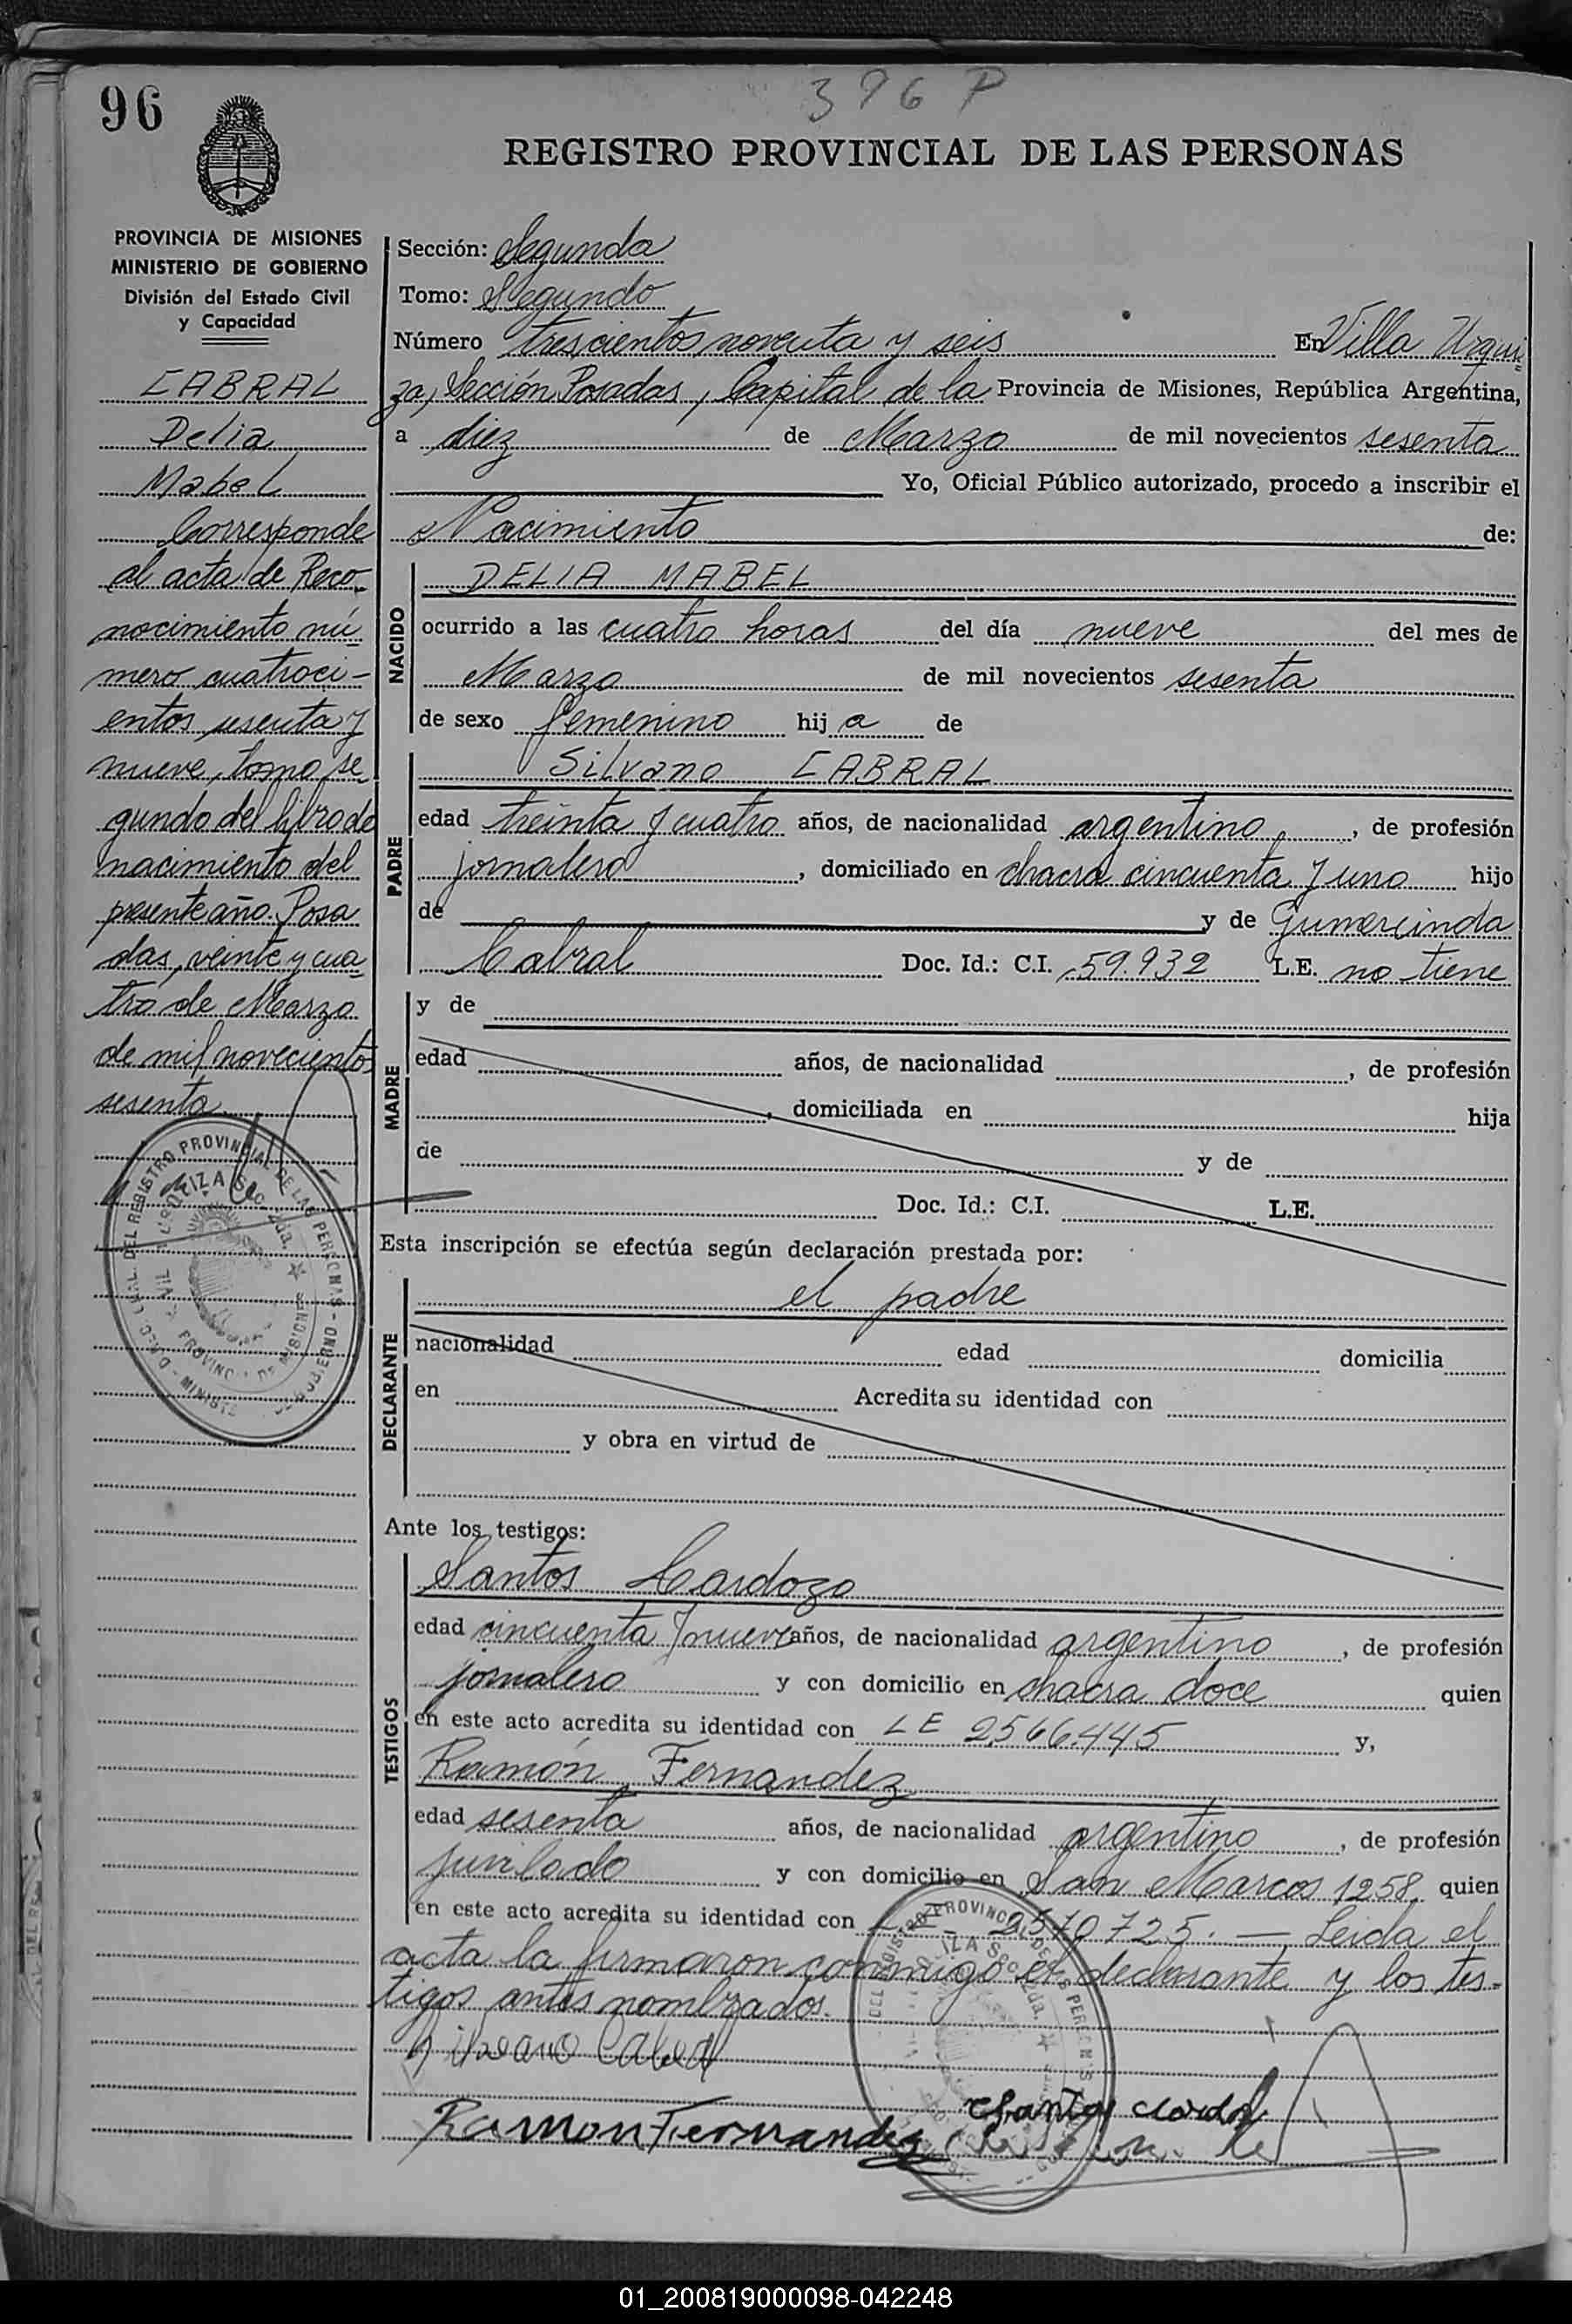 96
396 P
REGISTRO PROVINCIAL DE LAS PERSONAS
PROVINCIA DE MISIONES
MINISTERIO DE GOBIERNO
División del Estado Civil
y Capacidad
CABRAL
Delia
Mabel
Corresponde
al acta de Reco-
nocimiento nú-
mero cuatroci-
entos sesenta y
nueve, tomo se-
gundo del libro de
nacimiento del
presente año. Posa
das, veinte y cua-
tro de Marzo
de mil novecientos
sesenta
Sección: Segunda
Tomo: Segundo
Número trescientos noventa y seis En Villa Urqui-
za, Sección Posadas, Capital de la Provincia de Misiones, República Argentina,
a diez de Marzo de mil novecientos sesenta
Yo, Oficial Público autorizado, procedo a inscribir el
Nacimiento de:
NACIDO
DELIA MABEL
ocurrido a las cuatro horas del día nueve del mes de
Marzo de mil novecientos sesenta
de sexo femenino hija de
PADRE
Silvano CABRAL
edad treinta y cuatro años, de nacionalidad argentino, de profesión
jornalero, domiciliado en chacra cincuenta y uno hijo
de y de Gumercinda
Cabral Doc. Id.: C.I. 59.932 L.E. no tiene
MADRE
y de
edad años, de nacionalidad , de profesión
, domiciliada en hija
de y de
Doc. Id.: C.I. L.E.
Esta inscripción se efectúa según declaración prestada por:
DECLARANTE
el padre
nacionalidad edad domicilia
en Acredita su identidad con
y obra en virtud de
Ante los testigos:
TESTIGOS
Santos Cardozo
edad cincuenta y nueve años, de nacionalidad argentino, de profesión
jornalero y con domicilio en chacra doce quien
en este acto acredita su identidad con LE 2566.445 y,
Ramón Fernandez
edad sesenta años, de nacionalidad argentino, de profesión
juvilado y con domicilio en San Marcos 1258, quien
en este acto acredita su identidad con LE 2.570725. — Leida el
acta la firmaron conmigo el declarante y los tes-
tigos antes nombrados.
Silvano Cabral
Santos Cardozo
Ramon Fernandez
01_200819000098-042248